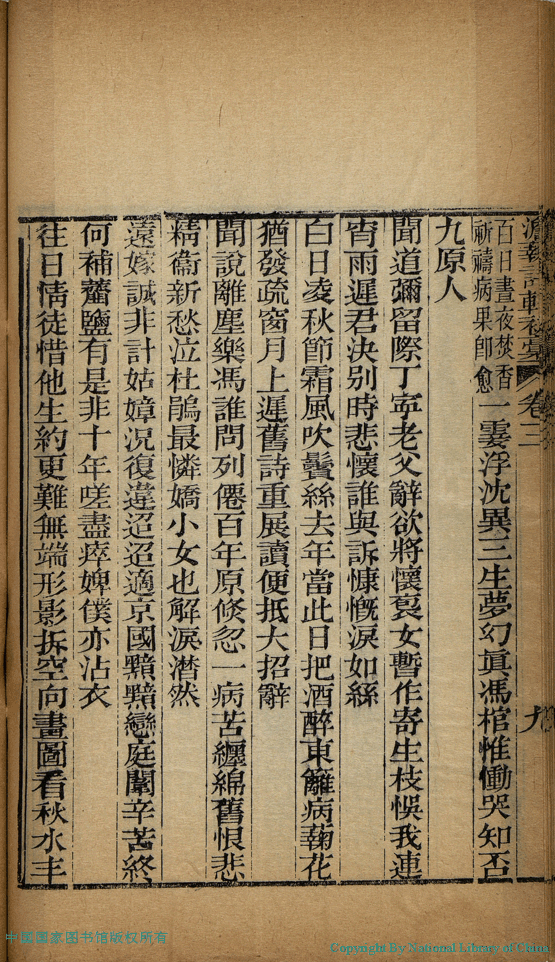 卷三 九
百日晝夜焚香
祈禱病果卽愈
一霎浮沈異三生夢幻眞馮棺惟慟哭知否
九原人
聞道彌留際丁寧老父辭欲將懷裏女暫作寄生枝悞我連
宵雨遲君決別時悲懷誰與訴慷慨淚如絲
白日凌秋節霜風吹鬢絲去年當此日把酒醉東籬病蘜花
猶發疏窗月上遲舊詩重展讀便抵大招辭
聞說離塵樂馮誰問列僊百年原倐忽一病苦纏綿舊恨悲
精衞新愁泣杜鵑最憐嬌小女也解淚潸然
遠嫁誠非計姑嫜況復違迢迢適京國黯黯戀庭闈辛苦終
何補虀鹽有是非十年嗟盡瘁婢僕亦沾衣
往日情徒惜他生約更難無端形影拆空向畫圖看秋水丰
中国国家图书馆版权所有
Copyright By National Library of China